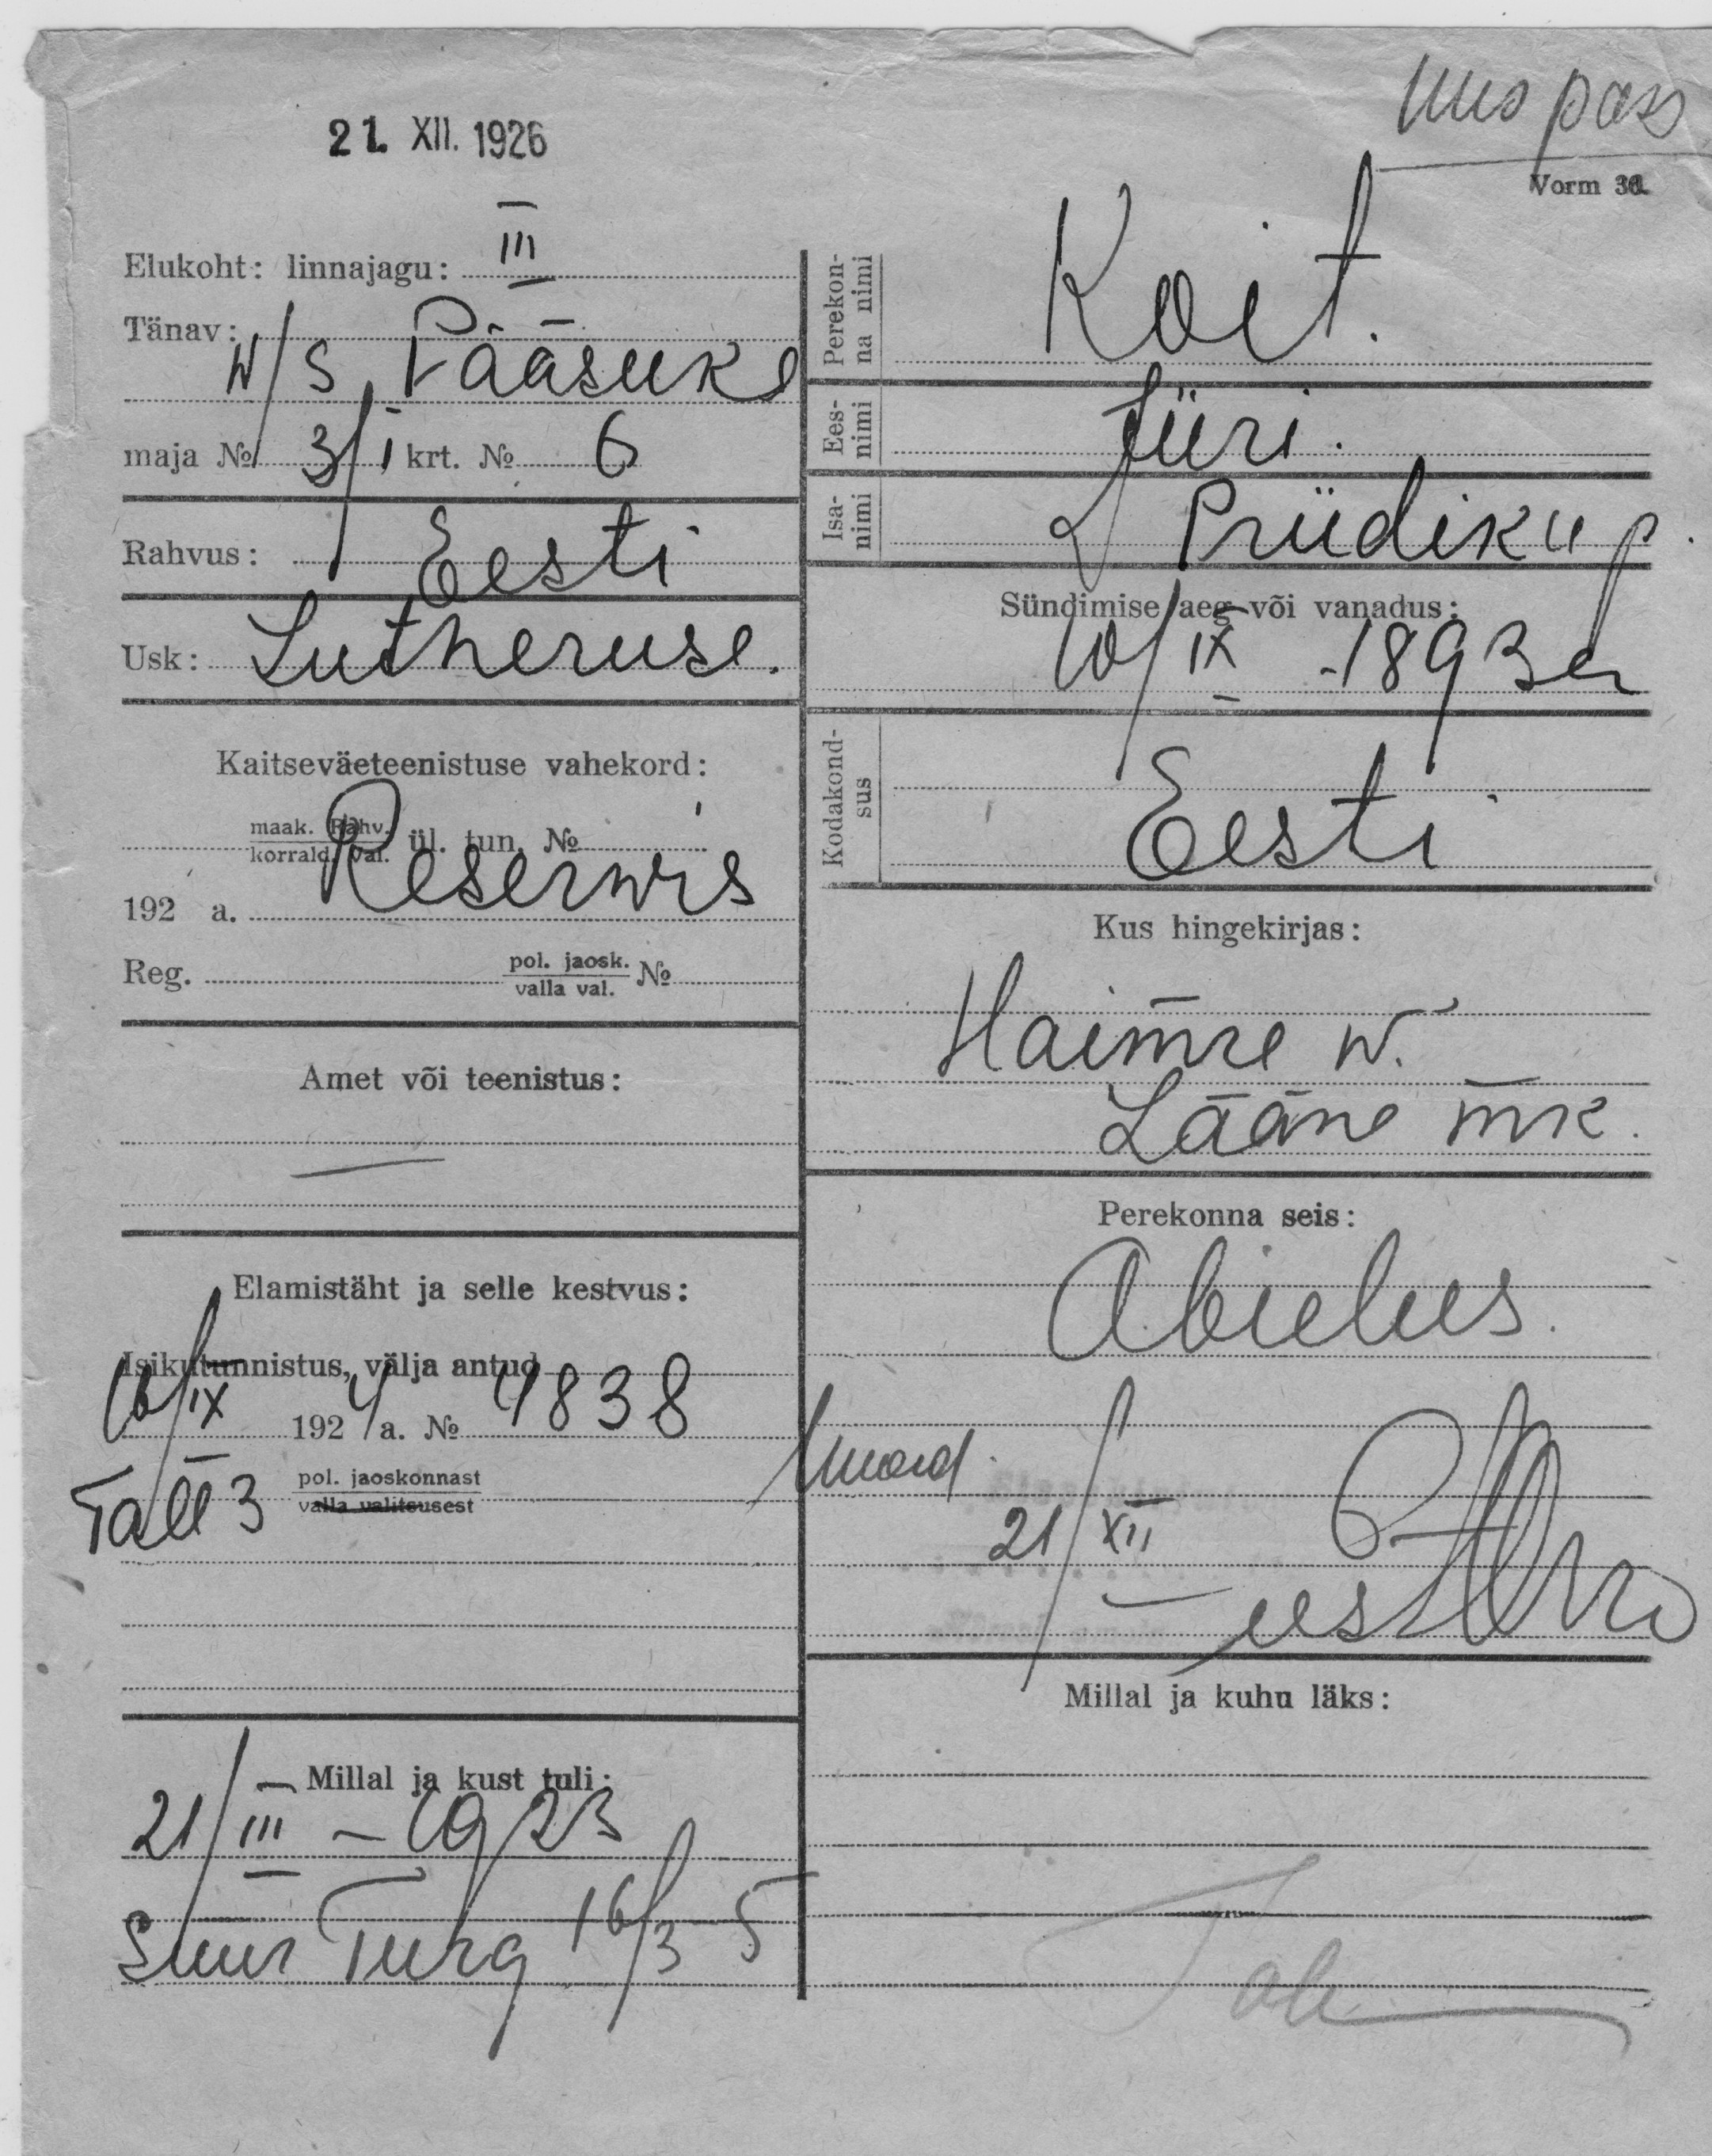 uus pass
21. XII. 1926
Vorm 36.
Elukoht: linnajagu: III
Tänav:
W/S. Pääsuke
maja № 3/1 krt. № 6
Rahvus: Eesti
Usk: Lutheruse.
Kaitseväeteenistuse vahekord:
maak. Rahv.
korrald. Val. ül. tun. №
Reserwis
192 a.
Reg. pol. jaosk.
valla val. №
Amet või teenistus:
Elamistäht ja selle kestvus:
Isikutunnistus, välja antud
16/IX 1924 a. № 4838
Tall 3 pol. jaoskonnast
valla valitsusest
Millal ja kust tuli:
21/III – 1923
Suur Turg 16/3 – 5
Perekon-
na nimi
Koit.
Ees-
nimi
Jüri.
Isa-
nimi
Priidiku p.
Sündimise aeg või vanadus:
10/IX - 1893
Kodakond-
sus
Eesti
Kus hingekirjas:
Haimre w.
Lääne mk.
Perekonna seis:
Abielus.
21/XII
Millal ja kuhu läks: